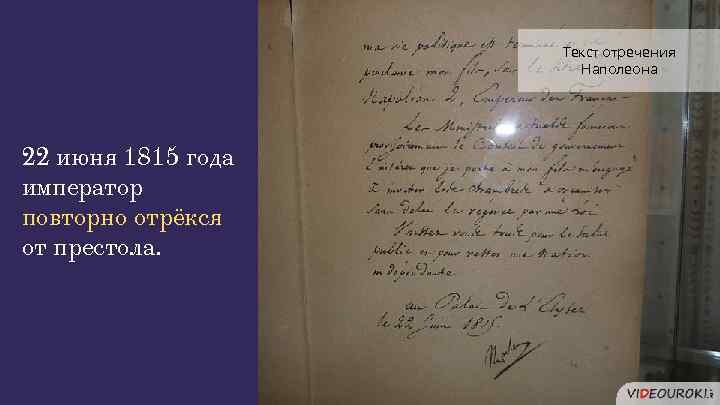 22 июня 1815 года
император
повторно отрёкся
от престола.
Текст отречения
Наполеона
ma vie politique est terminée et je
proclame mon fils, sous le titre de
Napoléon 2, Empereur des Français
Les Ministres actuels formeront
provisoirement le Conseil de gouvernement
L'intérêt que je porte à mon fils m'engage
à inviter les chambres à organiser
sans délai la régence par une loi
Unissez vous tous pour le salut
public et pour rester une Nation
indépendante
au Palais de l'Elysée
le 22 Juin 1815.
VIDEOUROKI